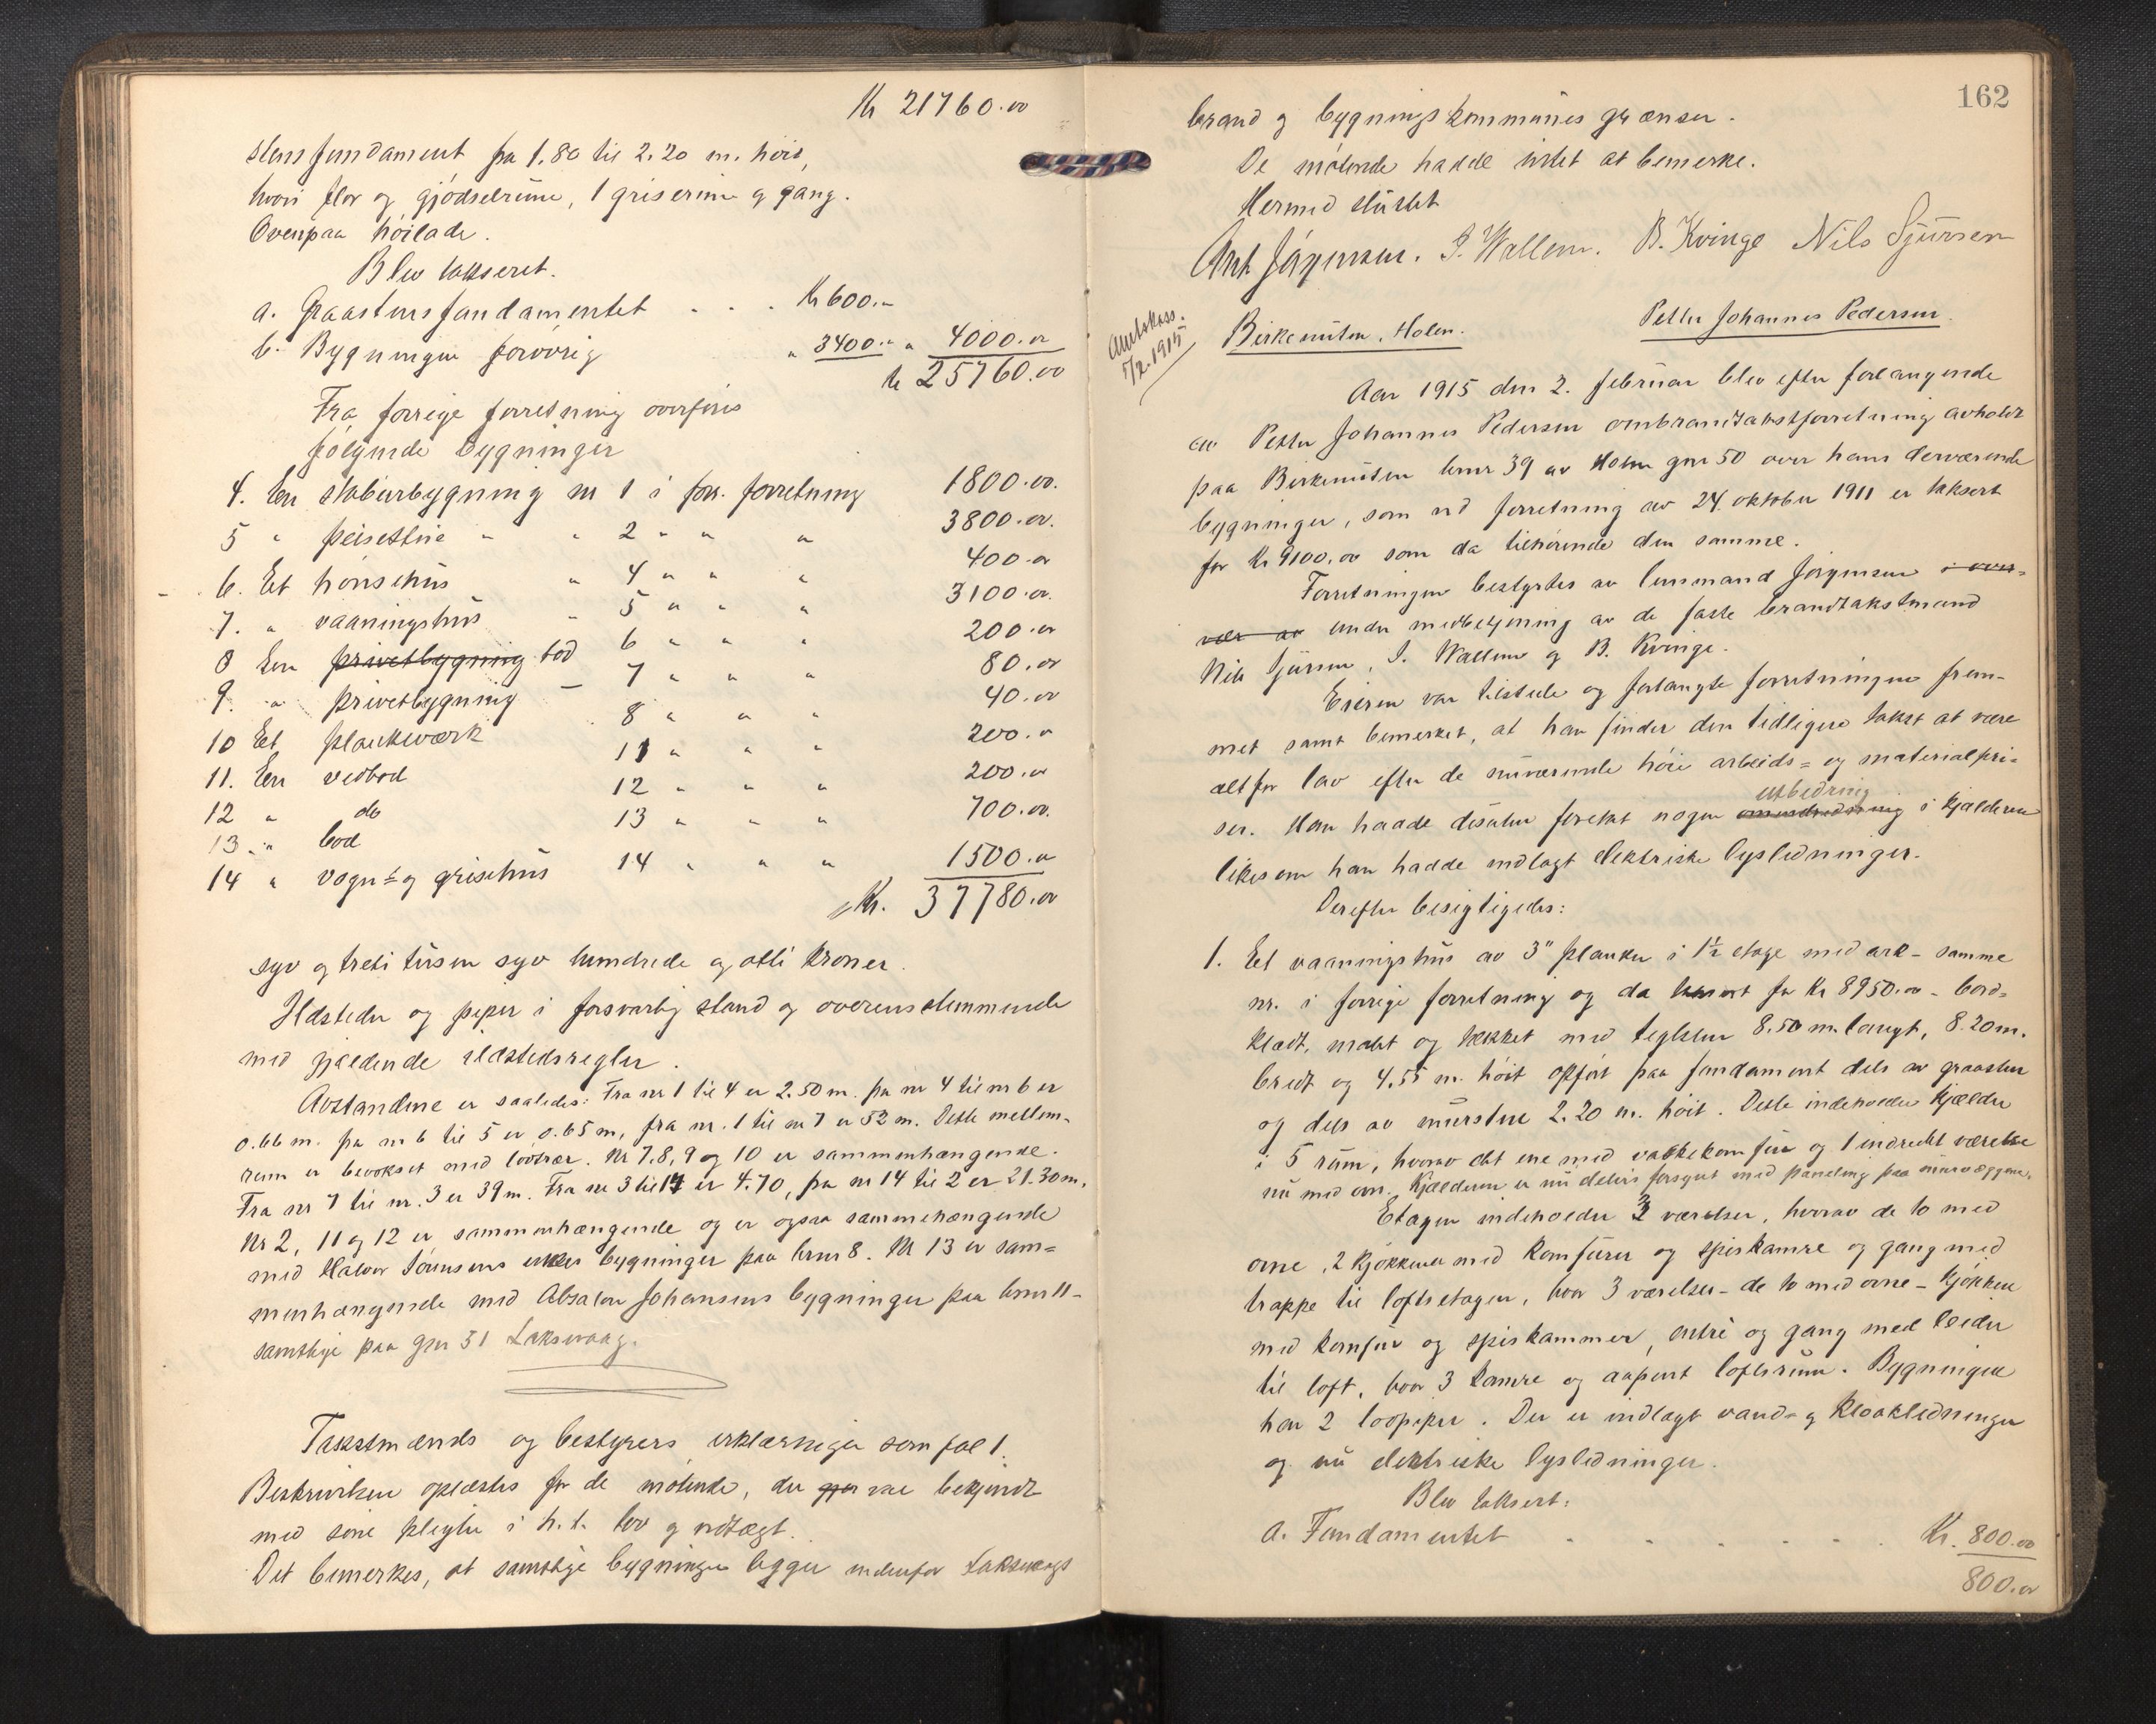 Kr 21760.00
stensfundament fra 1.80 til 2.20 m. høit,
hvori flor og gjødselrum, 1 griserum og gang.
Ovenpaa høilade.
Blev takseret.
a. Graastensfundamentet . . . Kr 600.-
b. Bygningen forøvrig " 3400.- " 4000.00
Kr 25760.00
Fra forrige forretning overføres
følgende bygninger
4. En stabursbygning nr 1 i forr. forretning 1800.00.
5 " peisestue " " 2 " " " 3800.00.
6. Et hønsehus " 4 " " " 400.00
7. " vaaningshus " 5 " " " 3100.00.
8 En privetbygning bod 6 " " " 200.00
9. " privetbygning – 7 " " " 80.00
10 Et plankeværk 8 " " " 40.00
11. En vedbod 11 " " " 200.00
12 " do 12 " " " 200.00
13. " bod 13 " " " 700.00.
14 " vogn- og grisehus 14 " " " 1500.00
Kr. 37780.00
syv og treti tusen syv hundrede og otti kroner.
Ildsteder og piper i forsvarlig stand og overensstemmende
med gjældende ildstedsregler.
Avstandene er saaledes: Fra nr 1 til 4 er 2.50 m. fra nr 4 til nr 6 er
0.66 m. fra nr 6 til 5 er 0.65 m, fra nr. 1 til nr 7 er 52 m. Dette mellem-
rum er bevokset med løvtrær. Nr 7, 8, 9 og 10 er sammenhængende.
Fra nr 7 til nr. 3 er 39 m. Fra nr 3 til 14 er 4.70, fra nr 14 til 2 er 21.30 m.
Nr 2, 11 og 12 er sammenhængende og er ogsaa sammehængende
med Halvor Sørensens enkes bygninger paa brnr 8. Nr 13 er sam-
menhængende med Absalon Johansens bygninger paa brnr 11 -
samtlige paa gnr 31 Laksevaag.
Takstmænds og bestyrers erklæringer som fol 1.
Beskrivelsen oplæstes for de møtende, der gjør var bekjendt
med sine pligter i h. t. lov og vedtægt.
Det bemerkes, at samtlige bygninger ligger indenfor Laksevaags
162
brand og bygningskommunes grænser.
De møtende hadde intet at bemerke.
Hermed sluttet
Ant Jørgensen. J. Wallem. B. Kvinge Nils Sjursen
Amtskass.
5/2.1915
Birkenuten, Holen. Petter Johannes Pedersen.
Aar 1915 den 2. februar blev efter forlangende
av Petter Johannes Pedersen ombrandtakstforretning avholdt
paa Birkenuten brnr 39 av Holen gnr 50 over hans derværende
bygninger, som ved forretning av 24. oktober 1911 er taksert
for Kr 9100,00 som da tilhørende den samme.
Forretningen bestyrtes av lensmand Jørgensen i over-
vær av under medbetjening av de faste brandtakstmænd
Nils Sjursen, J. Wallem og B. Kvinge.
Eieren var tilstede og forlangte forretningen frem-
met samt bemerket, at han finder den tidligere takst at være
altfor lav efter de nuværende høie arbeids- og materialpri-
utbedring
ser. Han hadde desuten foretat nogen omindredning i kjælderen
likesom han hadde indlagt elektriske lysledninger.
Derefter besigtigedes:
1. Et vaaningshus av 3" planker i 1½ etage med ark - samme
nr. i forrige forretning og da taksert for Kr 8950.00 - bord-
klædt, malet og tækket med teglsten 8.50 m. langt, 8.20 m.
bredt og 4.55 m. høit opført paa fundament dels av graasten
og dels av mursten 2.20 m. høit. Dette indeholder kjælder
i 5 rum, hvorav det ene med vaskekomfur og 1 indredet værelse
nu med ovn. Kjælderen er nu delvis forsynt med paneling paa murvæggene.
Etagen indeholder 3 værelser, hvorav de to med
ovne, 2 kjøkkener med komfurer og spiskamre og gang med
trappe til loftsetagen, hvor 3 værelser - de to med ovne - kjøkken
med komfur og spiskammer, entré og gang med leider
til loft, hvor 3 kamre og aapent loftsrum. Bygningen
har 2 løspiper. Der er indlagt vand- og kloakledninger
og nu elektriske lysledninger.
Blev taksert:
a. Fundamentet . . . . . . Kr. 800.00
800.00